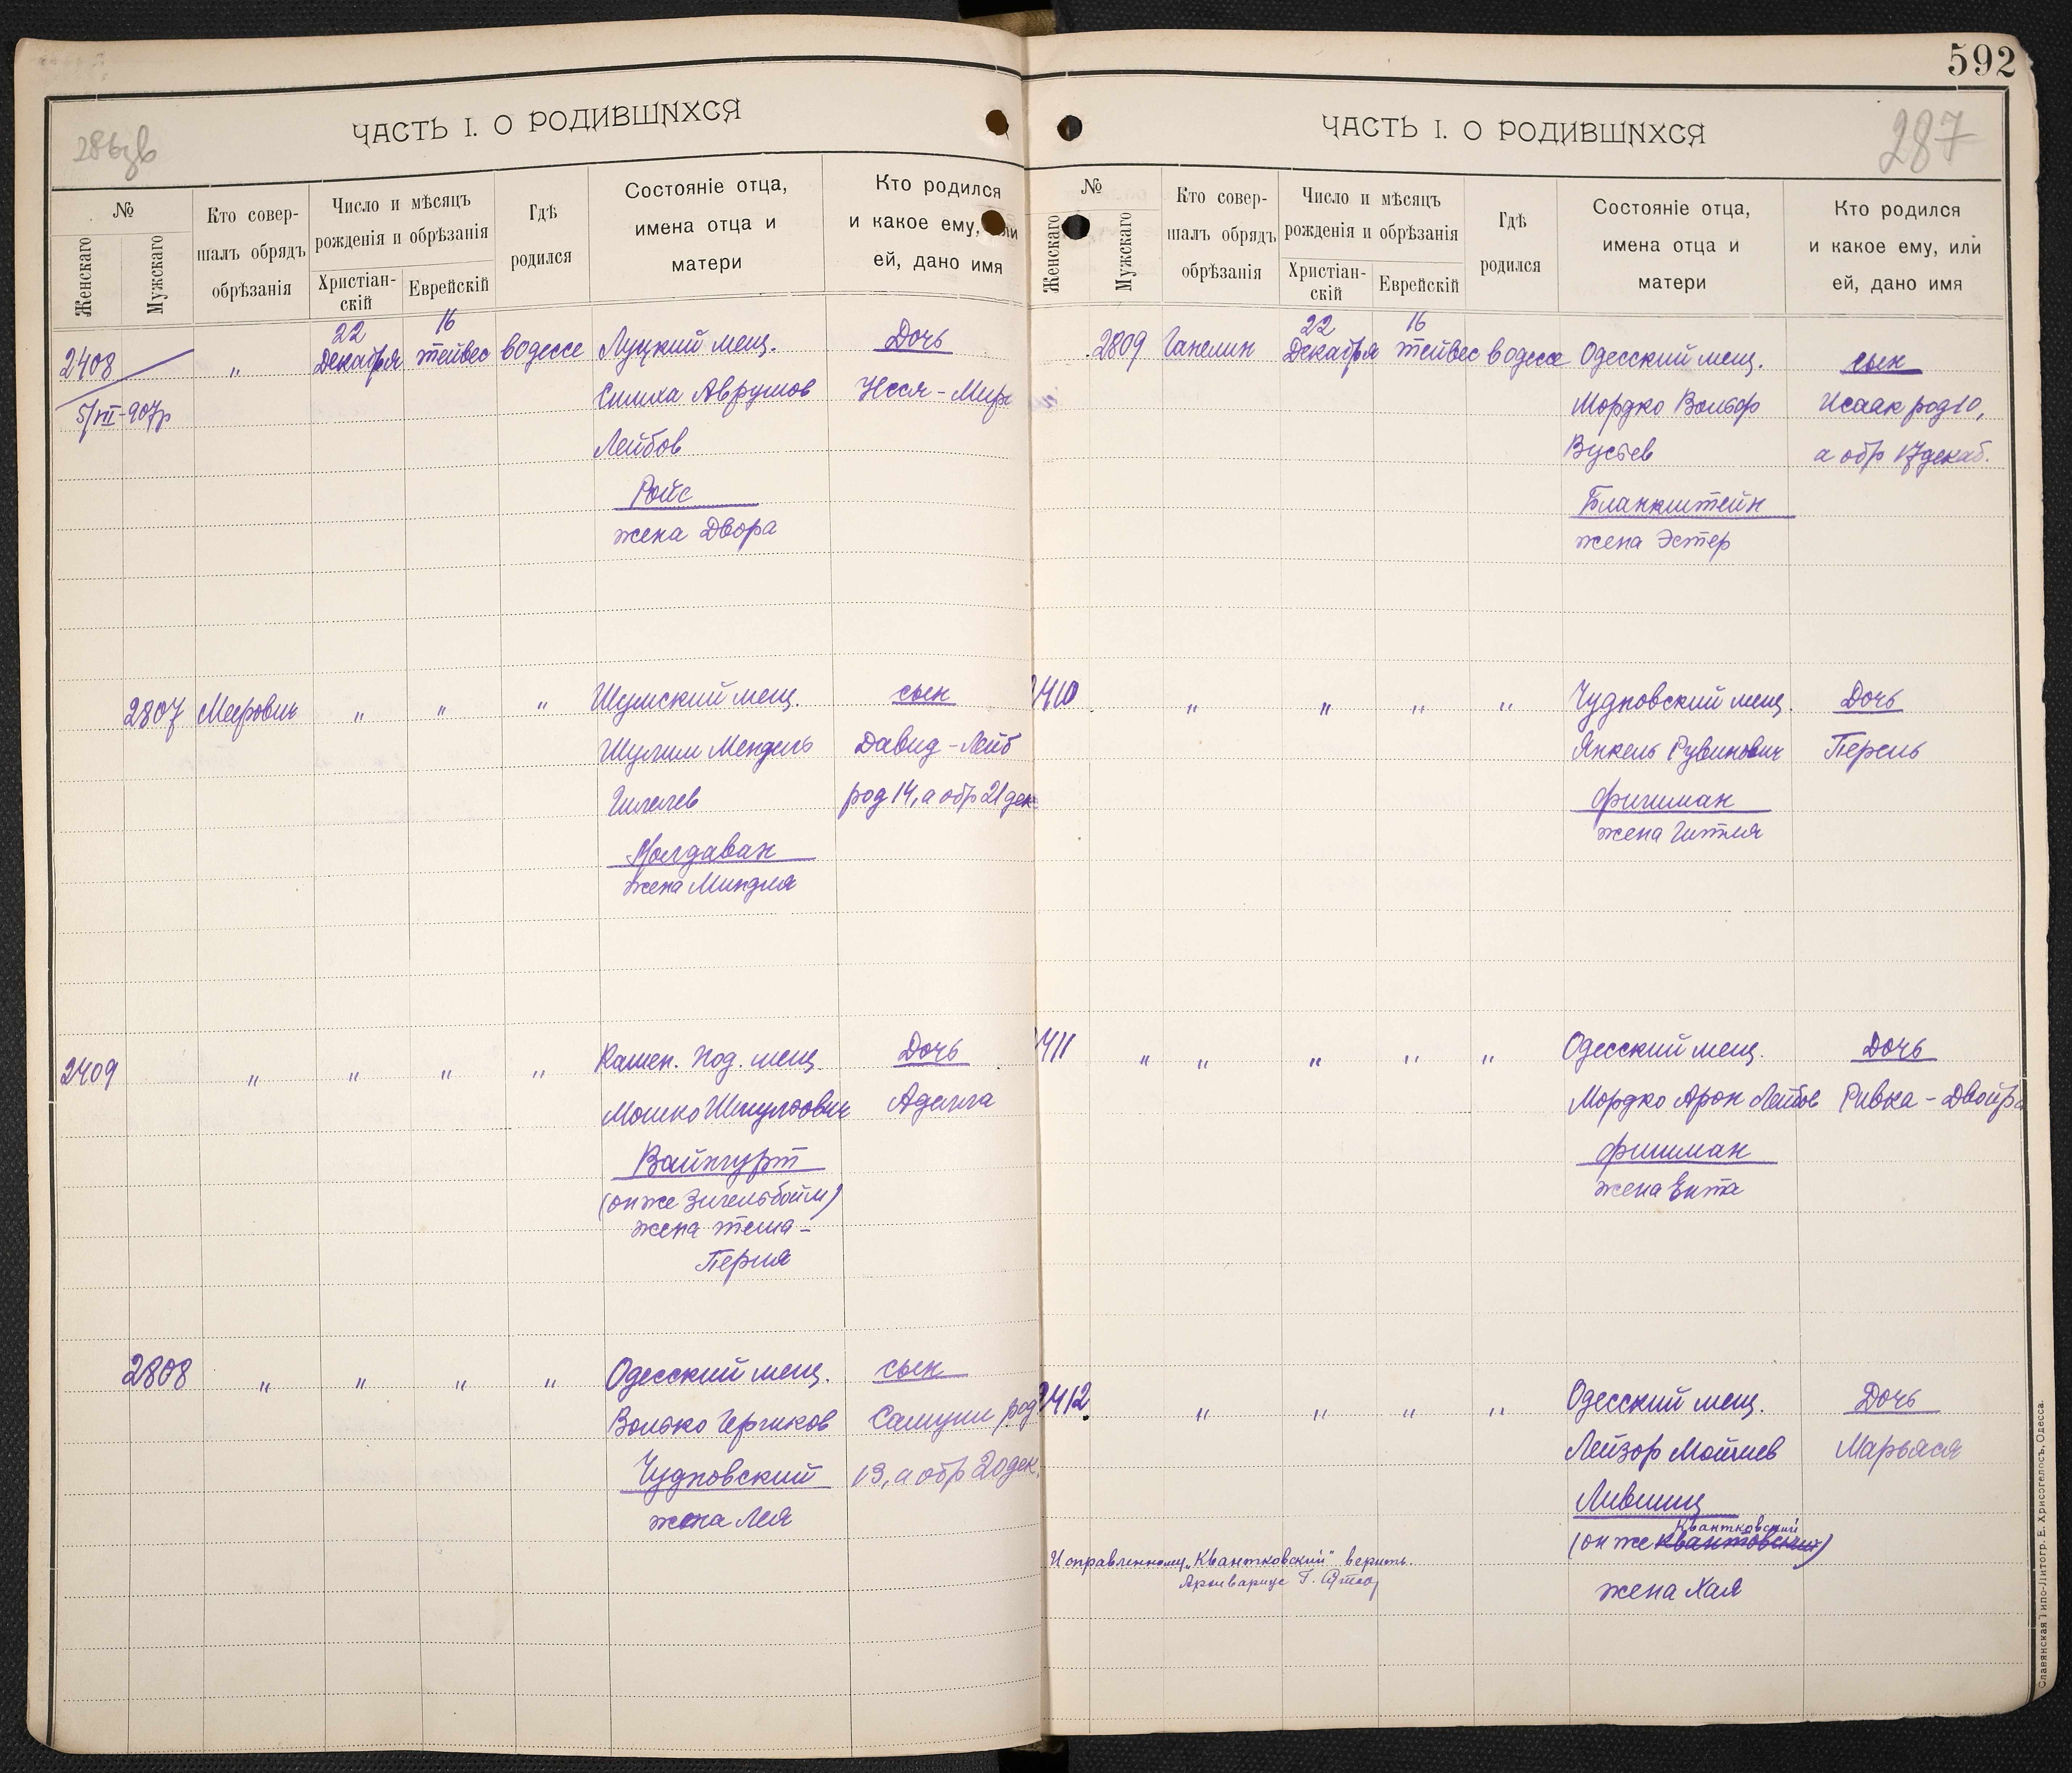 592
ЧАСТЬ I. О РОДИВШИХСЯ
№
Женскаго
Мужскаго
Кто совер-
шалъ обрядъ
обрѣзанія
Число и мѣсяцъ
рожденія и обрѣзанія
Христіан-
скій
Еврейскій
Гдѣ
родился
Состояніе отца,
имена отца и
матери
Кто родился
и какое ему, или
ей, дано имя
2408
5/VII-907р
"
22
Декабря
16
тейвес
в Одессе
Луцкий мещ.
Симха Аврумов
Лейбов
Ройс
жена Двора
Дочь
Нося-Мир
2807
Меерович
"
"
"
Шумский мещ.
Шулим Мендель
Гилелев
Молдаван
жена Миндля
сын
Давид-Лейб
род 14, а обр 21 дек
2409
"
"
"
"
Камен. Под. мещ.
Мошко Шмулович
Вайнгурт
(он же Зигельбойм)
жена тема-
Перля
Дочь
Аделла
2808
"
"
"
"
Одесский мещ.
Волько Гершков
Чудновский
жена Лея
сын
Самуил род
13, а обр 20 дек.
ЧАСТЬ I. О РОДИВШИХСЯ
287
№
Женскаго
Мужскаго
Кто совер-
шалъ обрядъ
обрѣзанія
Число и мѣсяцъ
рожденія и обрѣзанія
Христіан-
скій
Еврейскій
Гдѣ
родился
Состояніе отца,
имена отца и
матери
Кто родился
и какое ему, или
ей, дано имя
2809
Ганелин
22
Декабря
16
тейвес
в Одессе
Одесский мещ.
Мордко Вольф
Бланкштейн
жена Эстер
сын
Исаак род 10,
а обр 17 декаб.
2410
"
"
"
"
Чудновский мещ.
Янкель Рувинович
Фишман
жена Гитля
Дочь
Перель
2411
"
"
"
"
"
Одесский мещ.
Мордко Арон Лейбов
Фишман
жена Ента
Дочь
Ривка-Двойра
2412
"
"
"
"
Одесский мещ.
Лейзор Мойшев
Лившиц
Квантковский
(он же Квантовский)
жена Хая
Дочь
Марьяся
Исправленному „Квантковский" верить.
Архивариус Г.
Славянская Типо-Литогр. Е. Хрисогелосъ, Одесса.